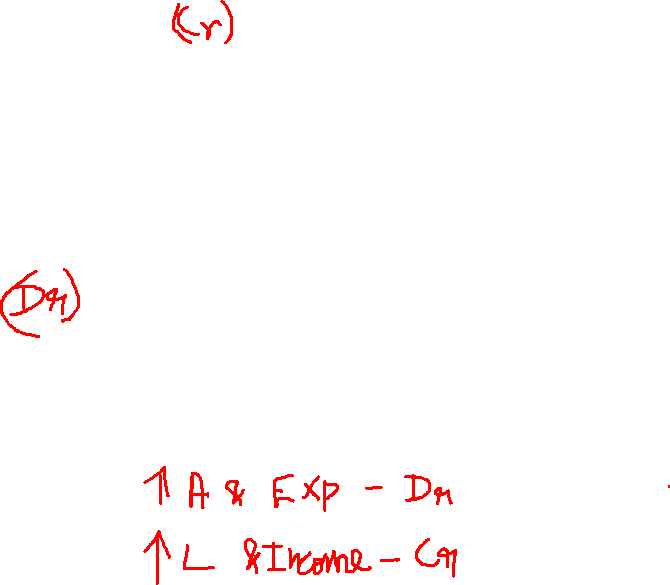 (Cr)
(Dr)
↑ A & Exp - Dr
↑ L & Income - Cr